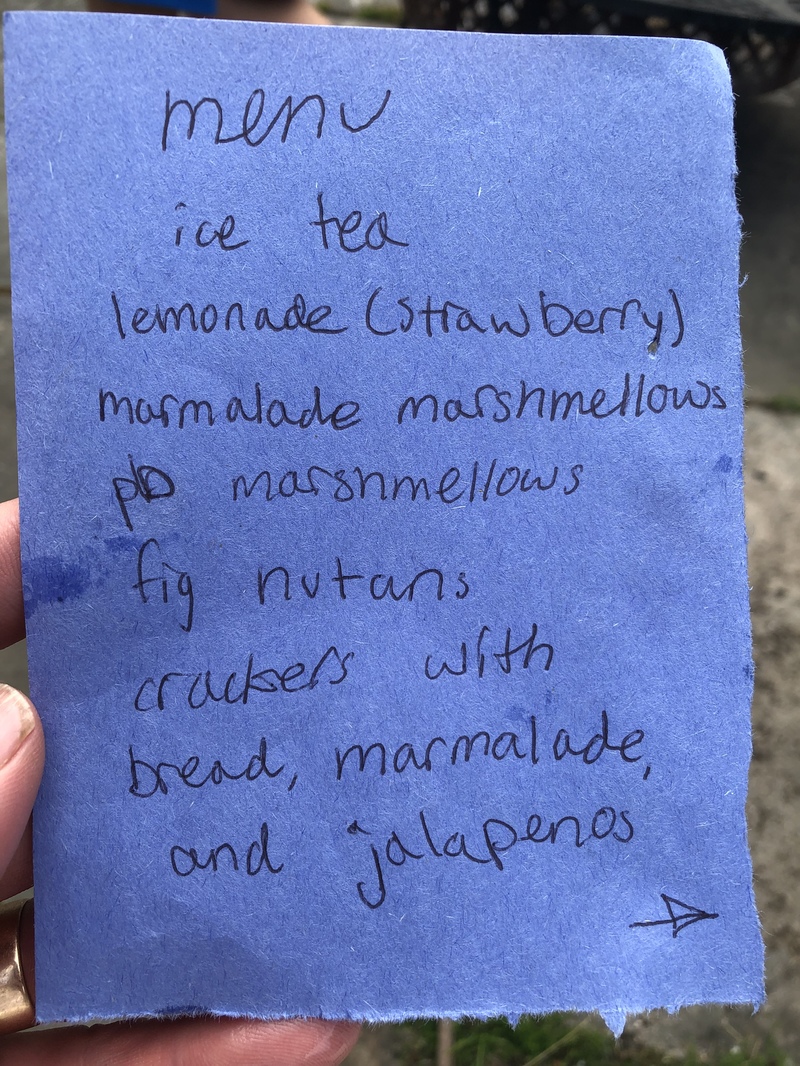 menu
ice tea
lemonade (strawberry)
marmalade marshmellows
pb marshmellows
fig nutans
crackers with
bread, marmalade,
and jalapenos